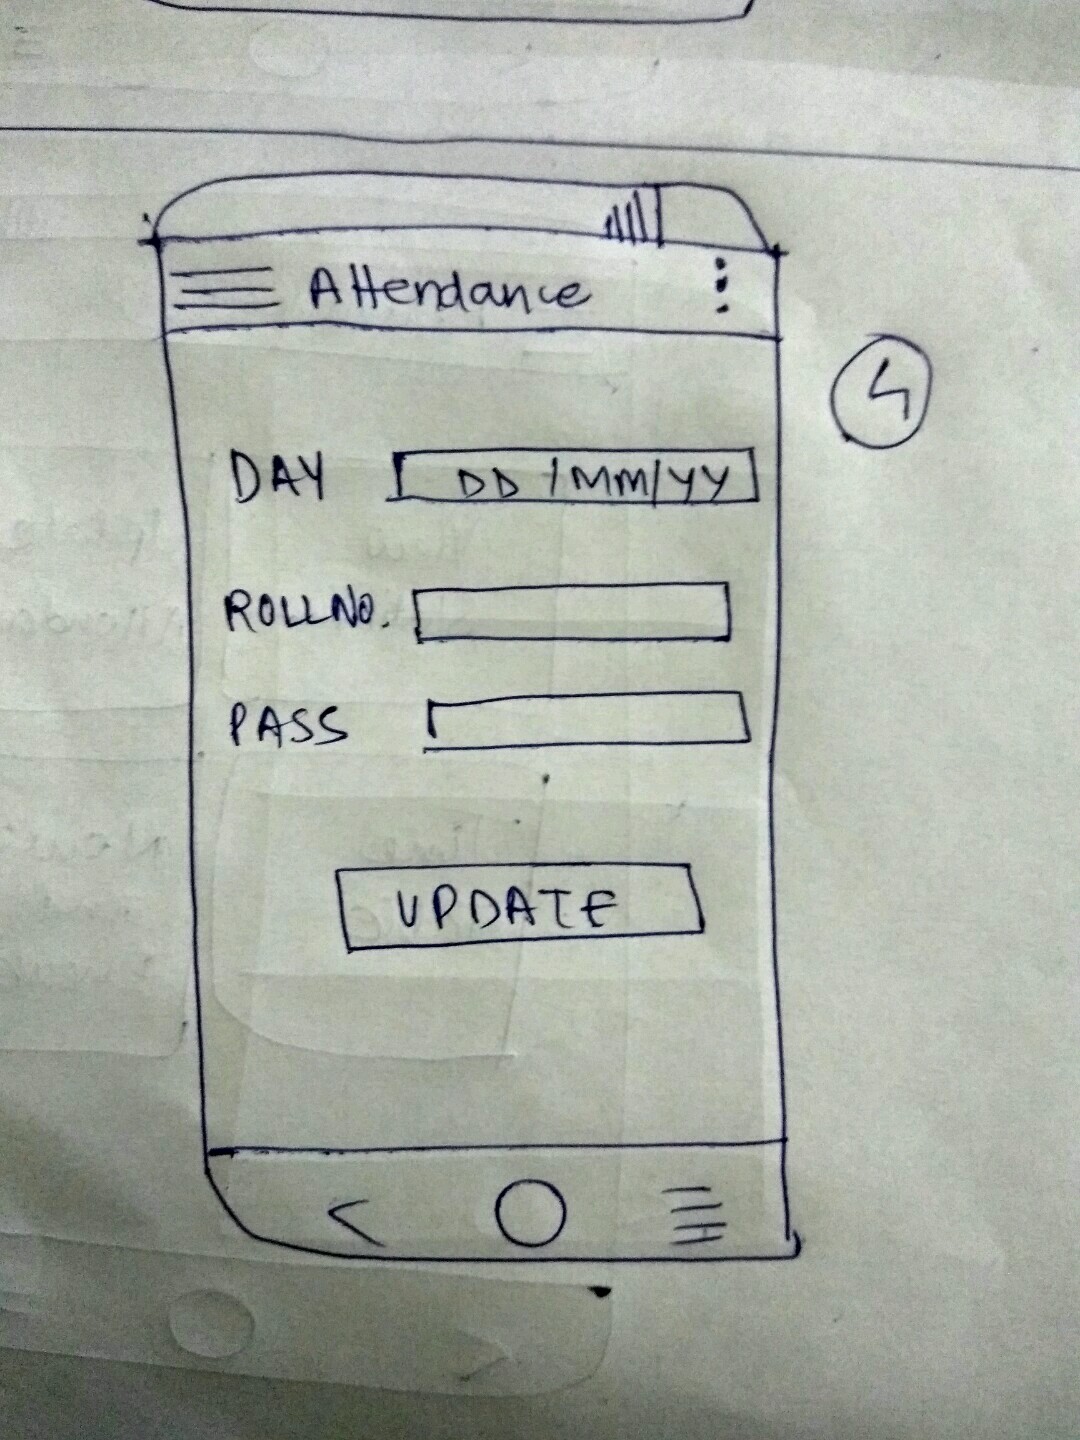 Attendance
4
DAY DD/MM/YY
ROLLNO.
PASS
UPDATE